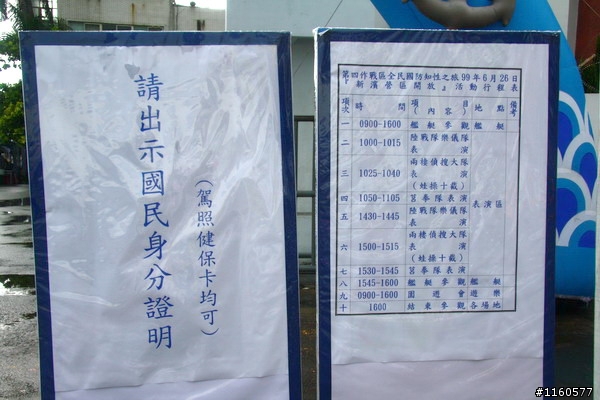 請出示國民身分證明
(駕照健保卡均可)
第四作戰區全民國防知性之旅99年6月26日
『新濱營區開放』活動行程表
項次 時間 項目(內容) 地點 備考
一 0900-1600 艦艇參觀 艦艇
二 1000-1015 陸戰隊樂儀隊表演
三 1025-1040 兩棲偵搜大隊表演(蛙操十載)
四 1050-1105 莒拳隊表演 表演區
五 1430-1445 陸戰隊樂儀隊表演
六 1500-1515 兩棲偵搜大隊表演(蛙操十載)
七 1530-1545 莒拳隊表演
八 1545-1600 艦艇參觀 艦艇
九 0900-1600 園遊會 遊樂
十 1600 結束參觀 各場地
#1160577